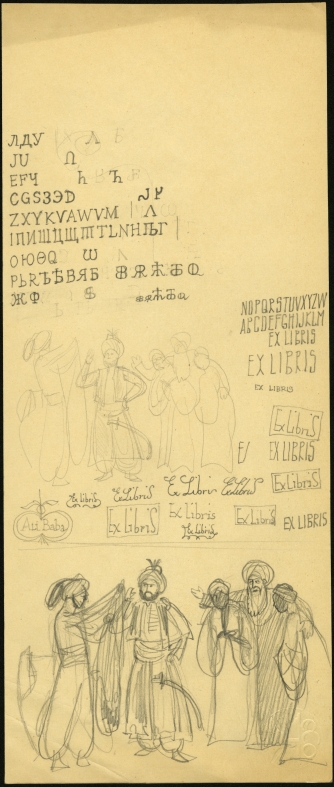 ЛДУ Λ
JU Ո
EFЧ h Ъ
CGSЗЭD
ZXYKVAWVM Λ
ІПИШЦЩТТLNHЊГ
ОЮΘQ Ѡ
РЬRЪѢВЯБ
ЖФ
NOPQRSTUVXYZW
ABCDEFGHIJKLM
EX LIBRIS
EX LIBRIS
EX LIBRIS
Ex LibriS
E/ EX LIBRIS
Ex LibriS
Ex Libris Ex LibriS Ex Libris Ex LibriS
Ali Baba Ex LibriS Ex Libris Ex LibriS EX LIBRIS
Ex Libris